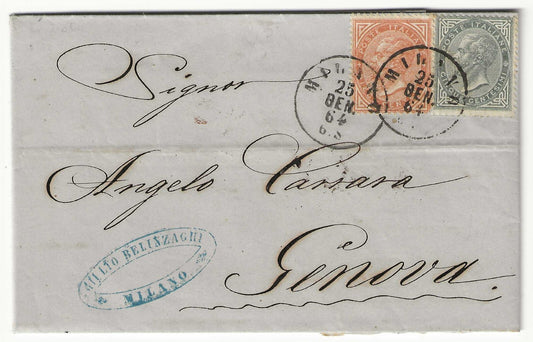 POSTE ITALIANE
POSTE ITALIANE
CINQUE CENTESIMI
MILANO
25
GEN.
64
6 S
MILANO
25
GEN.
64
Signor
Angelo Carrara
Génova
GIULIO BELINZAGHI
MILANO